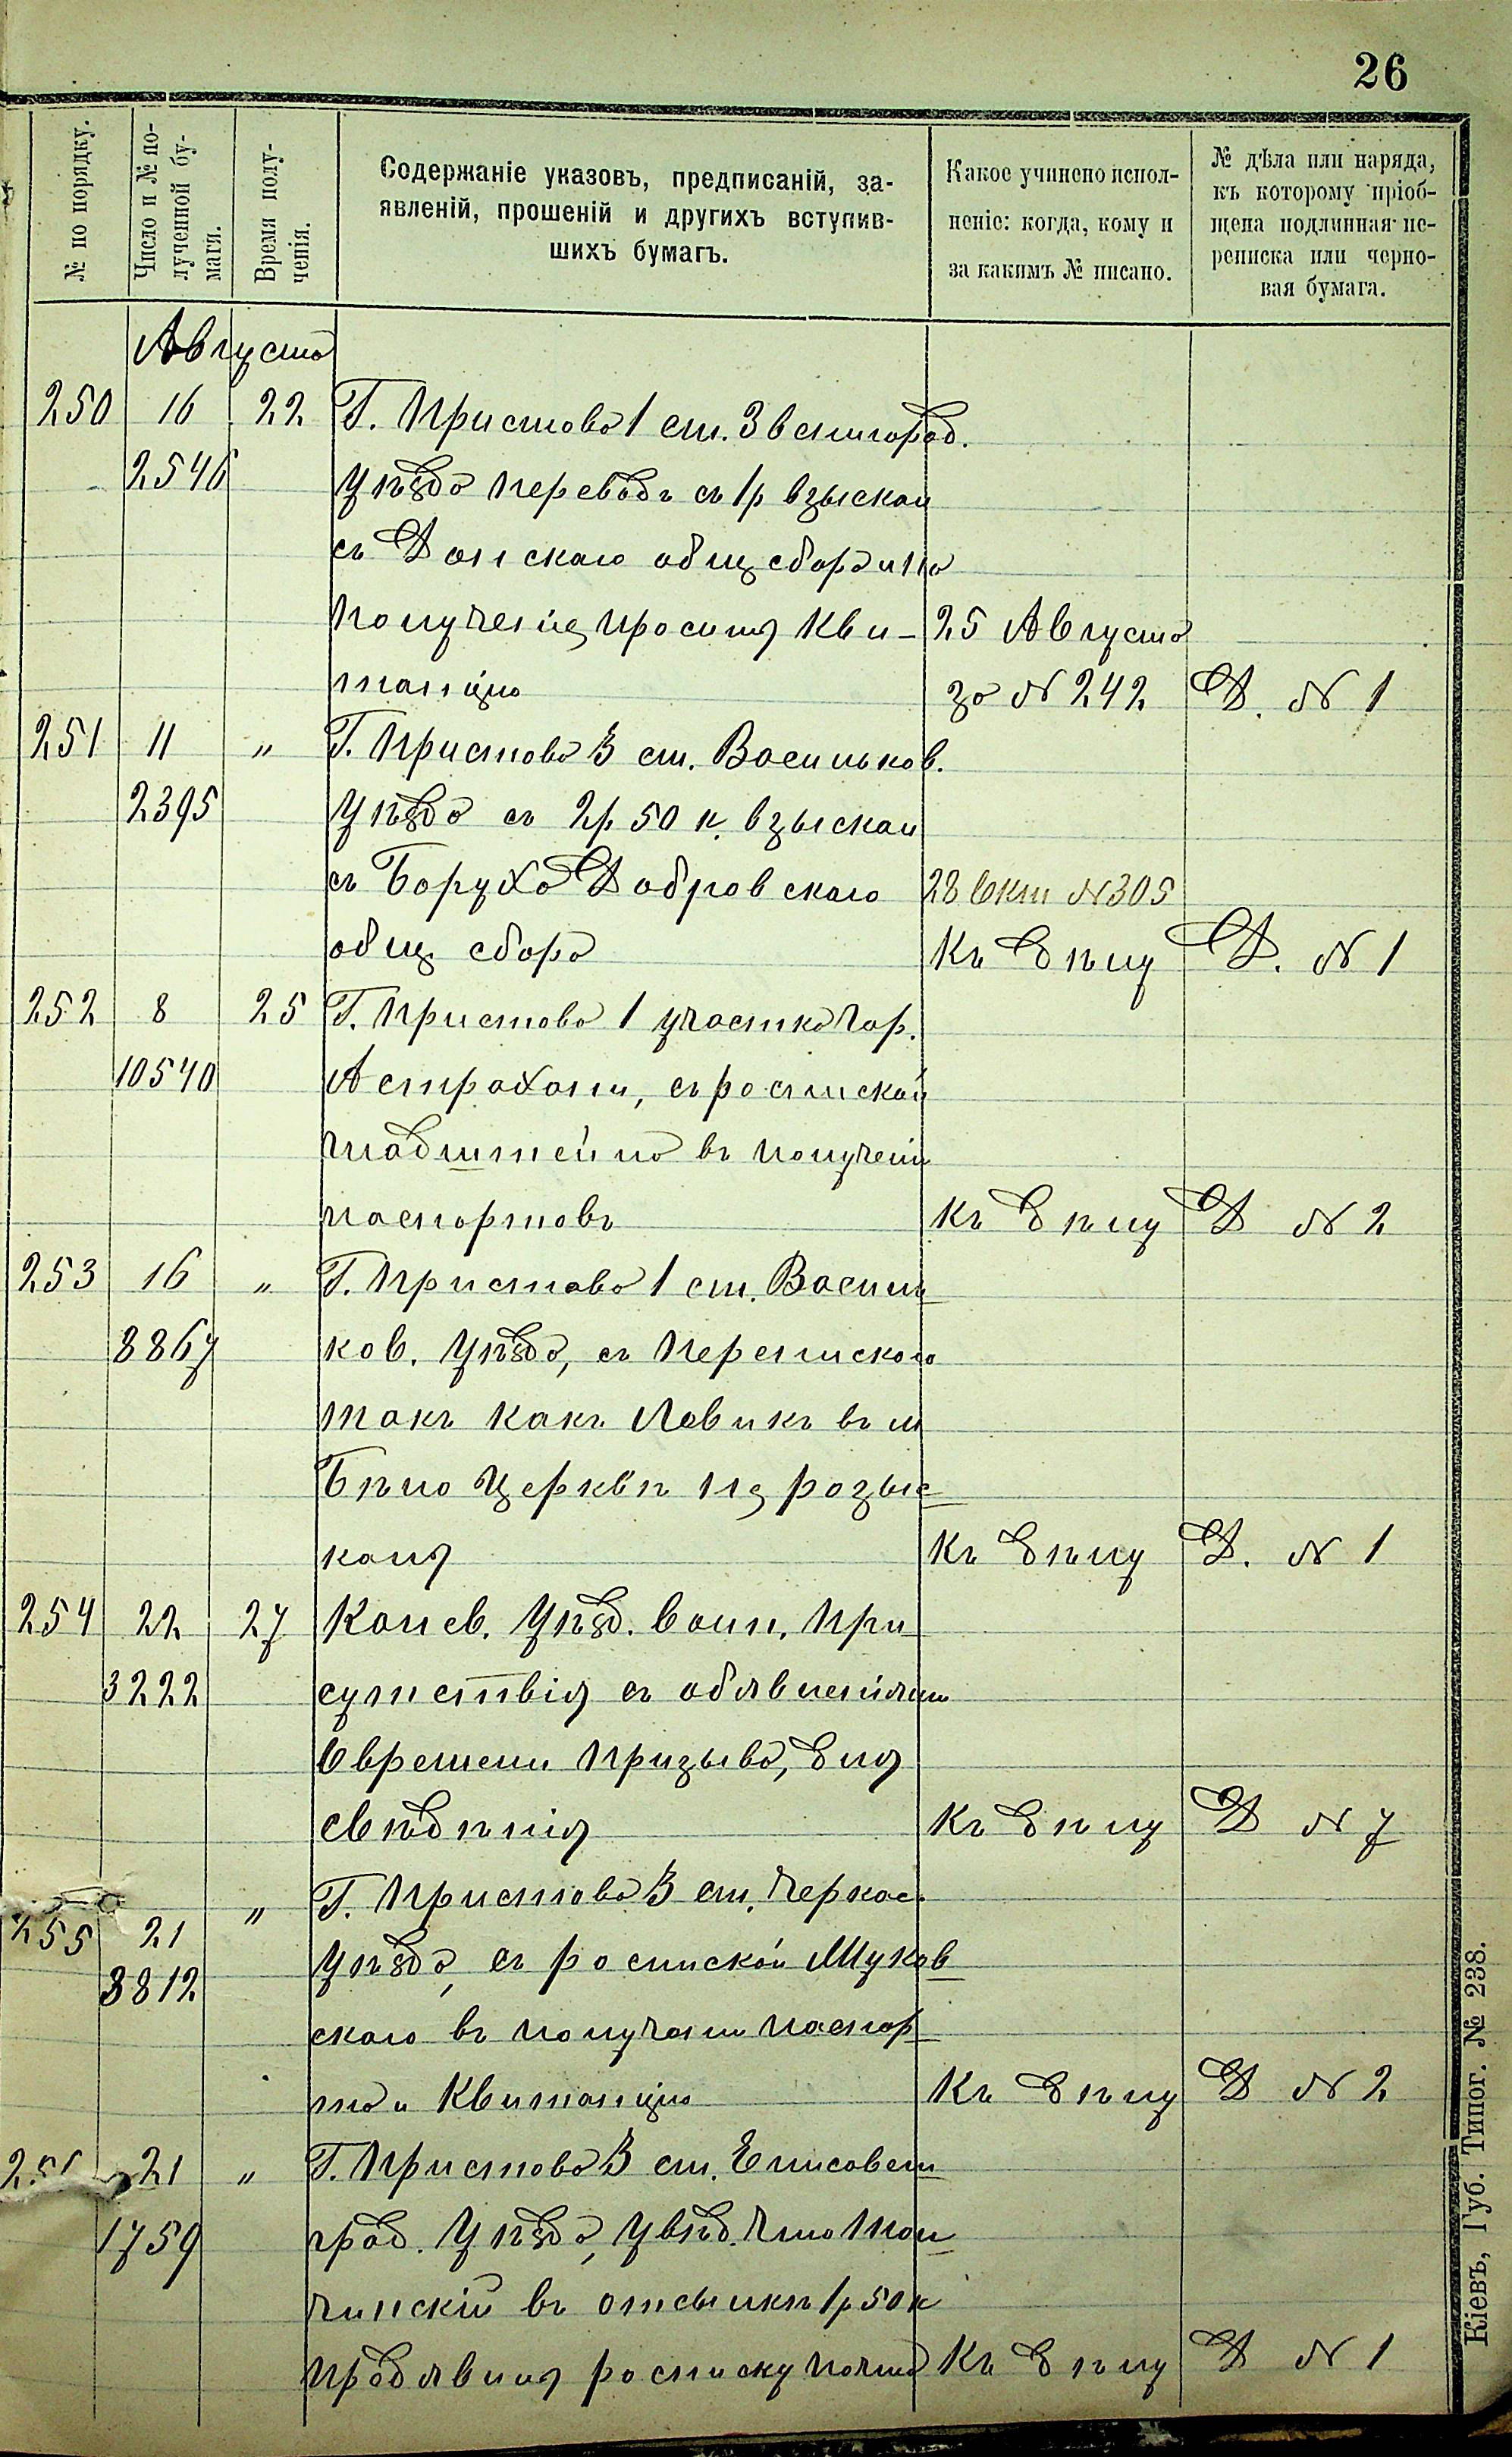 26
№ по порядку.
Число и № по-
лученной бу-
маги.
Время полу-
ченія.
Содержаніе указовъ, предписаній, за-
явленій, прошеній и другихъ вступив-
шихъ бумагъ.
Какое учинено испол-
неніе: когда, кому и
за какимъ № писано.
№ дѣла или наряда,
къ которому пріоб-
щена подлинная пе-
реписка или черно-
вая бумага.
Августа
250 16 22 Г. Пристава 1 ст. Звенигород.
2546 уѣзда переводъ съ 1р взыскан
съ Донскаго общ сбора и по
полученіи проситъ кви- 25 Августа
танцію за № 242 Д. № 1
251 11 " Г. Пристава 3 ст. Васильков.
2395 уѣзда съ 2р 50 к. взыскан
съ Боруха Добровскаго 28 Окт № 305
общ сбора Къ дѣлу Д. № 1
252 8 25 Г. Пристава 1 участка гор.
10540 Астрахани, съ роспиской
въ полученіи
паспортовъ Къ дѣлу Д № 2
253 16 " Г. Пристава 1 ст. Василь
8867 ков. уѣзда, съ перепискою
такъ какъ Левикъ въ м
Бѣло Церквѣ не розыс
канъ Къ дѣлу Д. № 1
254 22 27 Канев. уѣзд. воин. при
3222 сутствія съ объявленіями
О времени призыва, для
свѣдѣнія Къ дѣлу Д № 7
255 21 " Г. Пристава 3 ст. Черкас.
8812 уѣзда, съ роспиской Жуков
скаго въ получении паспор
та и квитанцію Къ дѣлу Д № 2
21 " Г. Пристава 3 ст. Елисавет
1759 град. уѣзда, увѣд. что
чинскій въ отсылкѣ 1р 50к
предъявилъ росписку почты Къ дѣлу Д № 1
Кіевъ, Губ. Типог. № 238.